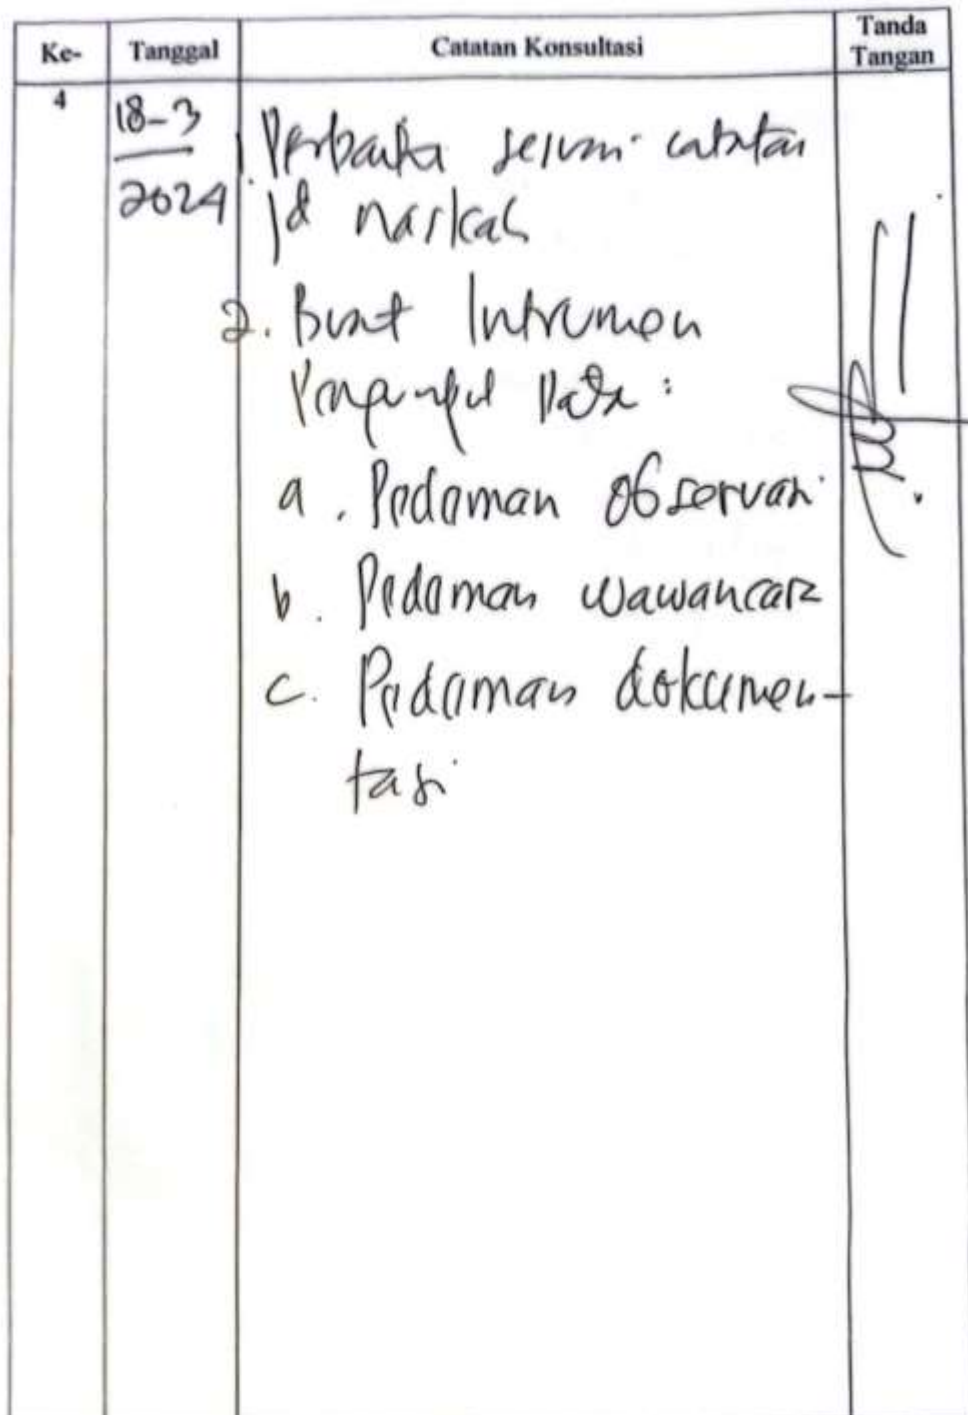 Ke- Tanggal Catatan Konsultasi Tanda Tangan
4 18-3 2024
1. Perbaiki sesuai catatan
pd naskah
2. Buat Intrumen
Pengumpul Data :
a. Pedoman observasi
b. Pedoman wawancara
c. Pedoman dokumen-
tasi